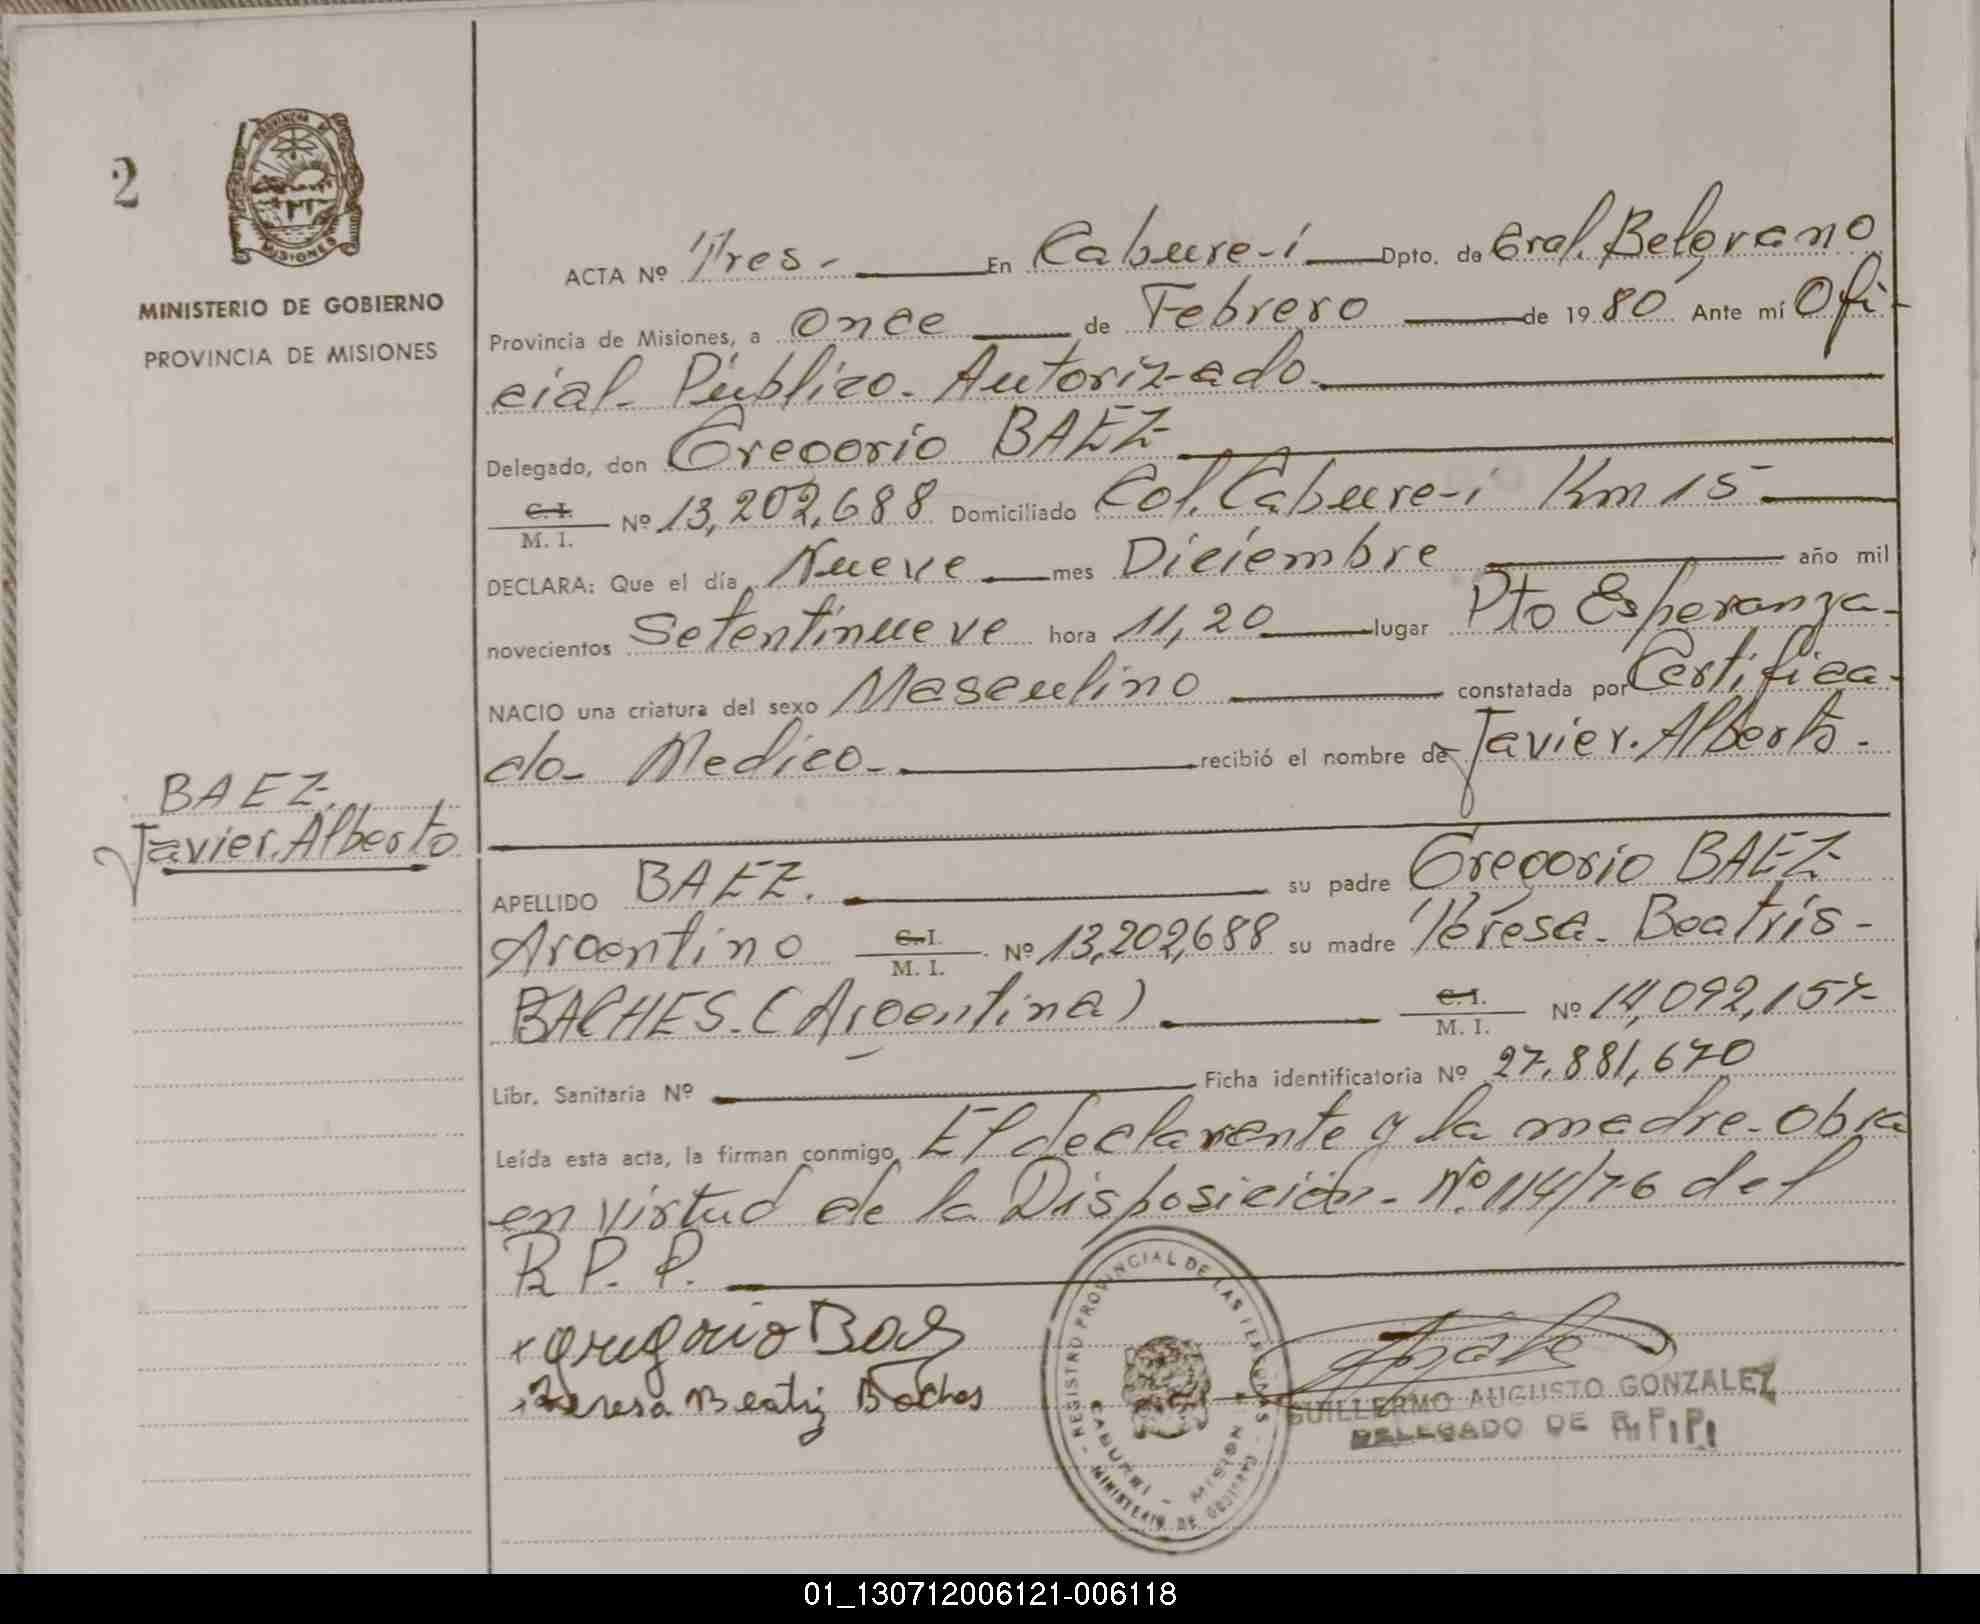 2
PROVINCIA DE
MISIONES
MINISTERIO DE GOBIERNO
PROVINCIA DE MISIONES
ACTA Nº Tres.- En Cabure-í Dpto. de Gral. Belgrano
Provincia de Misiones, a Once de Febrero de 19 80 Ante mí Ofi-
cial Público. Autorizado.
Delegado, don Gregorio BAEZ
C. I.
M. I. Nº 13,202,688 Domiciliado Col. Cabure-i Km 15
DECLARA: Que el día Nueve mes Diciembre año mil
novecientos Setentinueve hora 11,20 lugar Pto Esperanza-
NACIO una criatura del sexo Masculino constatada por Certifica-
do- Medico- recibió el nombre de Javier. Alberto.
BAEZ.
Javier. Alberto
APELLIDO BAEZ. su padre Gregorio BAEZ
Argentino C. I. M. I. Nº 13,202,688 su madre Teresa. Beatris-
BACHES. (Argentina) C. I. M. I. Nº 14,092,157-
Libr. Sanitaria Nº Ficha identificatoria Nº 27.881,670
Leída esta acta, la firman conmigo El declarante y la madre. Obra
en virtud de la Disposición- Nº 114/76 del
R P. P.
x Gregorio Baez
Teresa Beatriz Baches
REGISTRO PROVINCIAL DE LAS PERSONAS
MINISTERIO DE GOBIERNO
GUILLERMO AUGUSTO GONZALEZ
DELEGADO DE R.P.P.
01_130712006121-006118